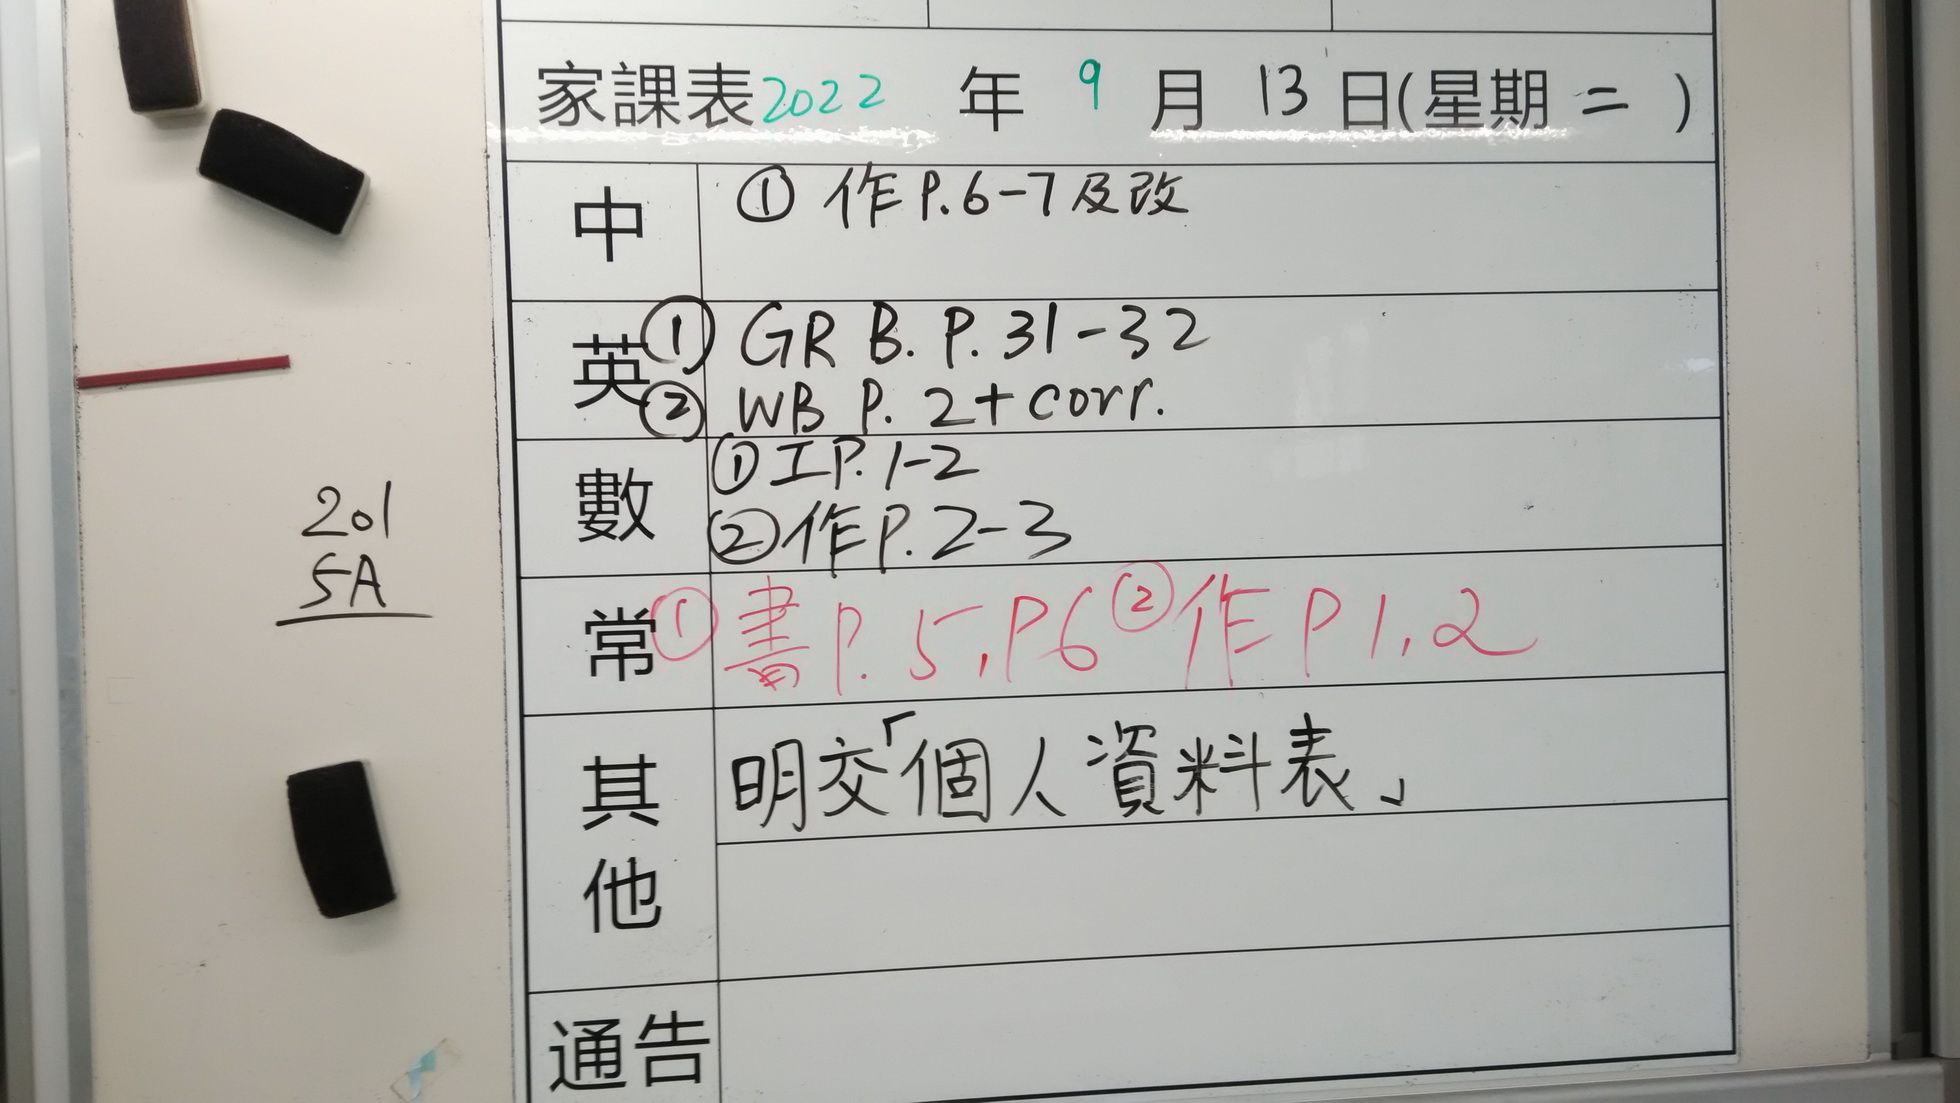 家課表2022 年 9 月 13 日(星期 二 )
中
① 作P.6-7及改
英
① GR B. P. 31-32
② WB P. 2+corr.
數
①工P.1-2
②作P.2-3
常
①書P.5,P6 ②作P1,2
其他
明交「個人資料表」
通告
201
5A